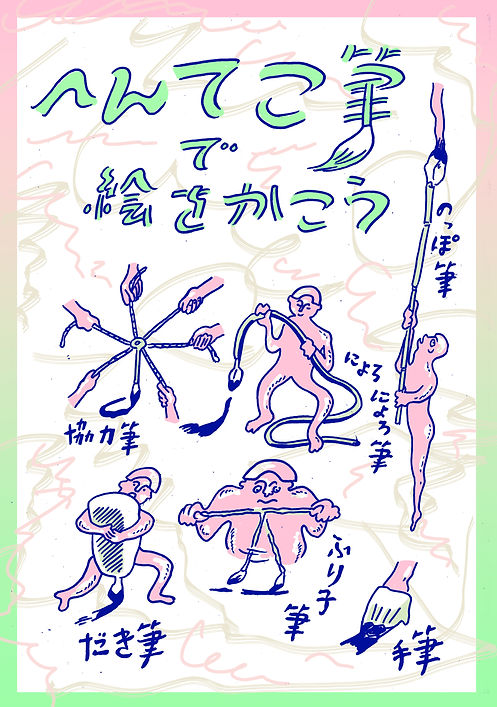 へんてこ筆
で
絵をかこう
のっぽ筆
協力筆
によろによろ筆
だき筆
ふり子筆
手筆